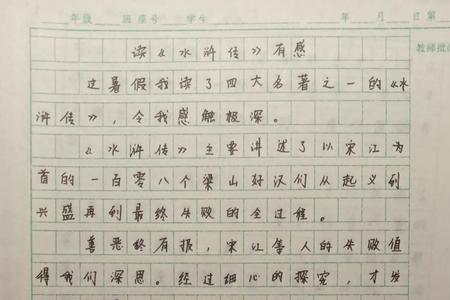 年级 班座号 学生 年 月 日第
教师批
读《水浒传》有感
过暑假我读了四大名著之一的《水
浒传》，令我感触极深。
《水浒传》主要讲述了以宋江为
首的一百零八个梁山好汉们从起义到
兴盛再到最终失败的全过程。
善恶终有报，宋江等人的失败值
得我们深思。经过细心的探究，才发